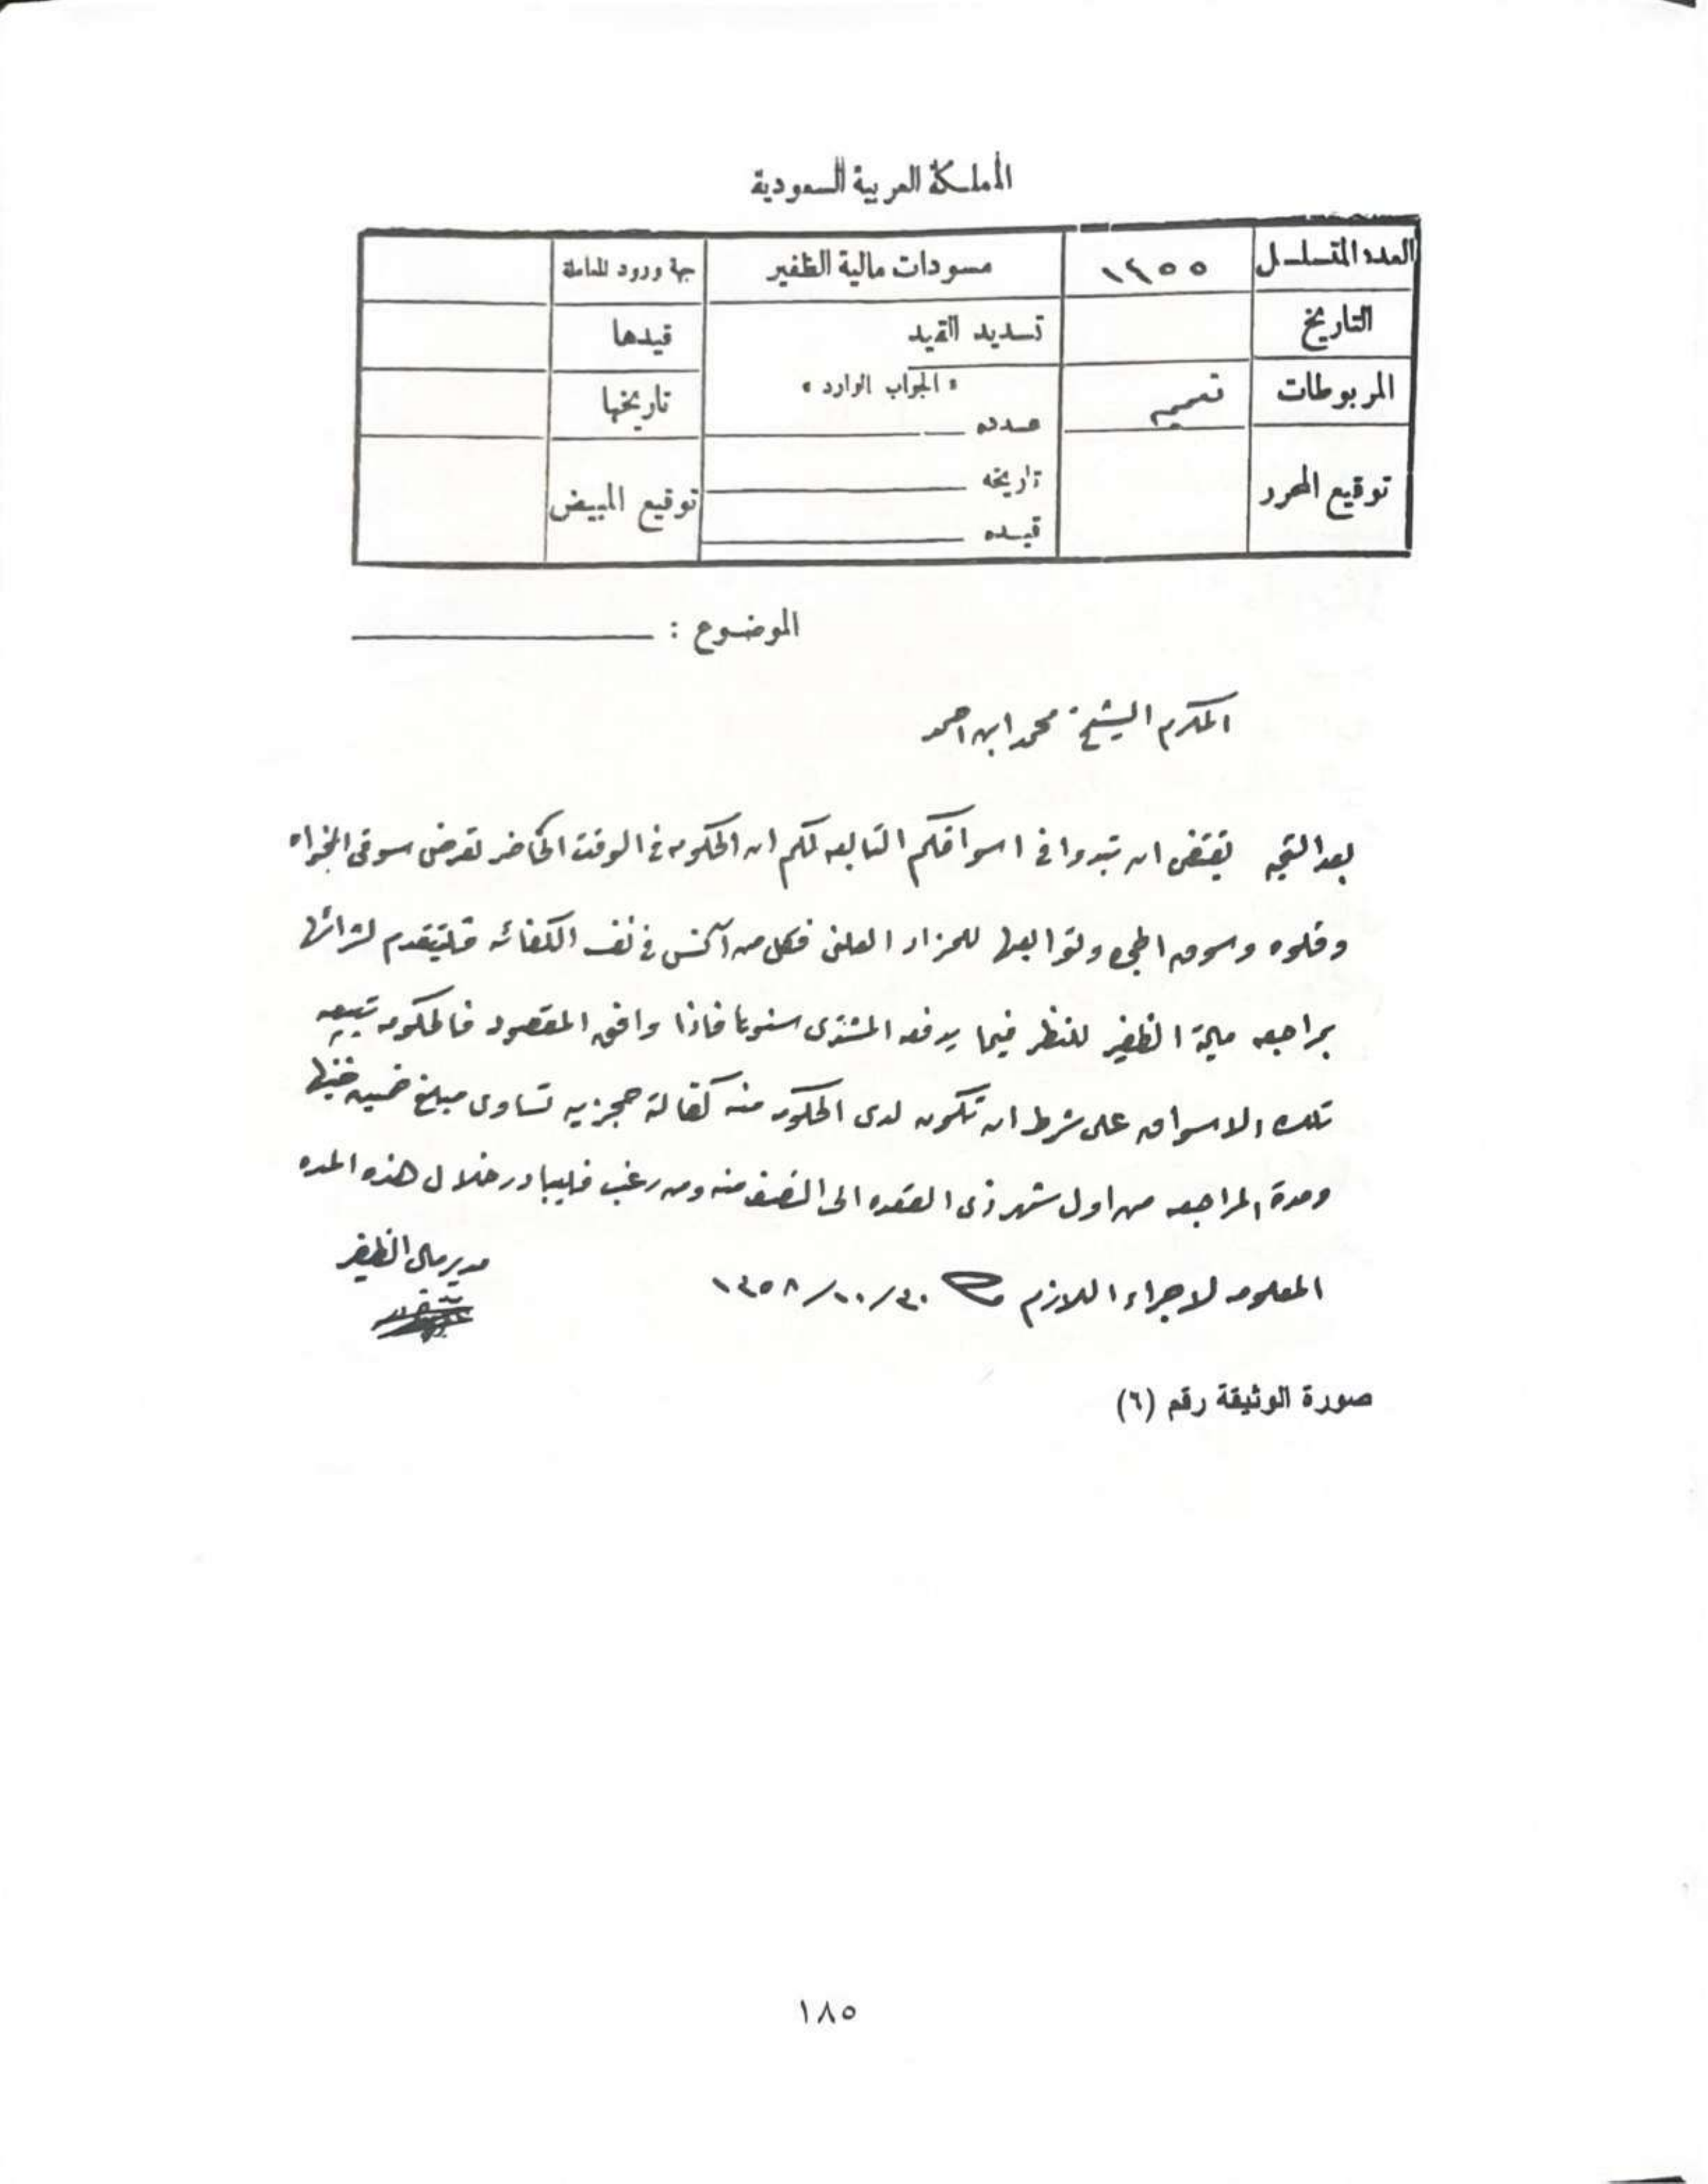 المملكة العربية السعودية
العدد المتسلسل ١٢٥٥ مسودات مالية الظفير جهة ورود المعاملة
التاريخ تسديد القيد قيدها
المربوطات تعميم « الجواب الوارد » تاريخها
عدده
توقيع المحرر تاريخه توقيع المبيض
قيده
الموضوع :
المكرم الشيخ محمد ابن احمد
بعد التحيه يقتضي ان تبدوا في اسواقكم التابعه لكم ان الحكومه في الوقت الحاضر تعرض سوقي المخواه
وقلوه وسوق وتوابعها للمزاد العلني فكل من آنس في نفسه الكفائه فليتقدم لشرائها
بمراجعه مالية الظفير للنظر فيما يدفعه المشتري سنويا فاذا وافق المقصود فالحكومه تبيعه
تلك الاسواق على شرط ان تكون لدى الحكومه منه كفالة حجزيه تساوى مبلغ خمسين جنيها
ومدة المراجعه من اول شهر ذى القعده الى النصف منه ومن رغب فليبادر خلال هذه المده
المعلومه لاجراء اللازم ١٣٥٨/١٠/٢٠
مدير مال الظفير
صورة الوثيقة رقم (٦)
١٨٥